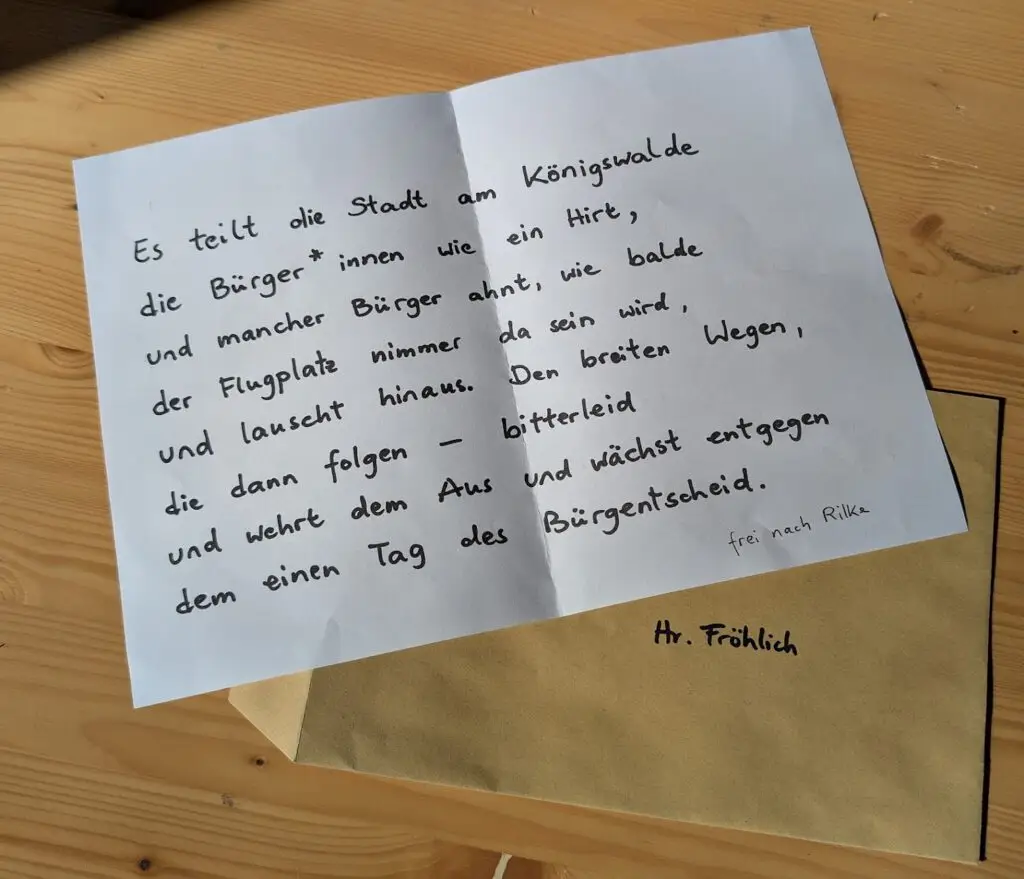 Es teilt die Stadt am Königswalde
die Bürger*innen wie ein Hirt,
und mancher Bürger ahnt, wie balde
der Flugplatz nimmer da sein wird,
und lauscht hinaus. Den breiten Wegen,
die dann folgen – bitterleid
und wehrt dem Aus und wächst entgegen
dem einen Tag des Bürgentscheid.
frei nach Rilke
Hr. Fröhlich